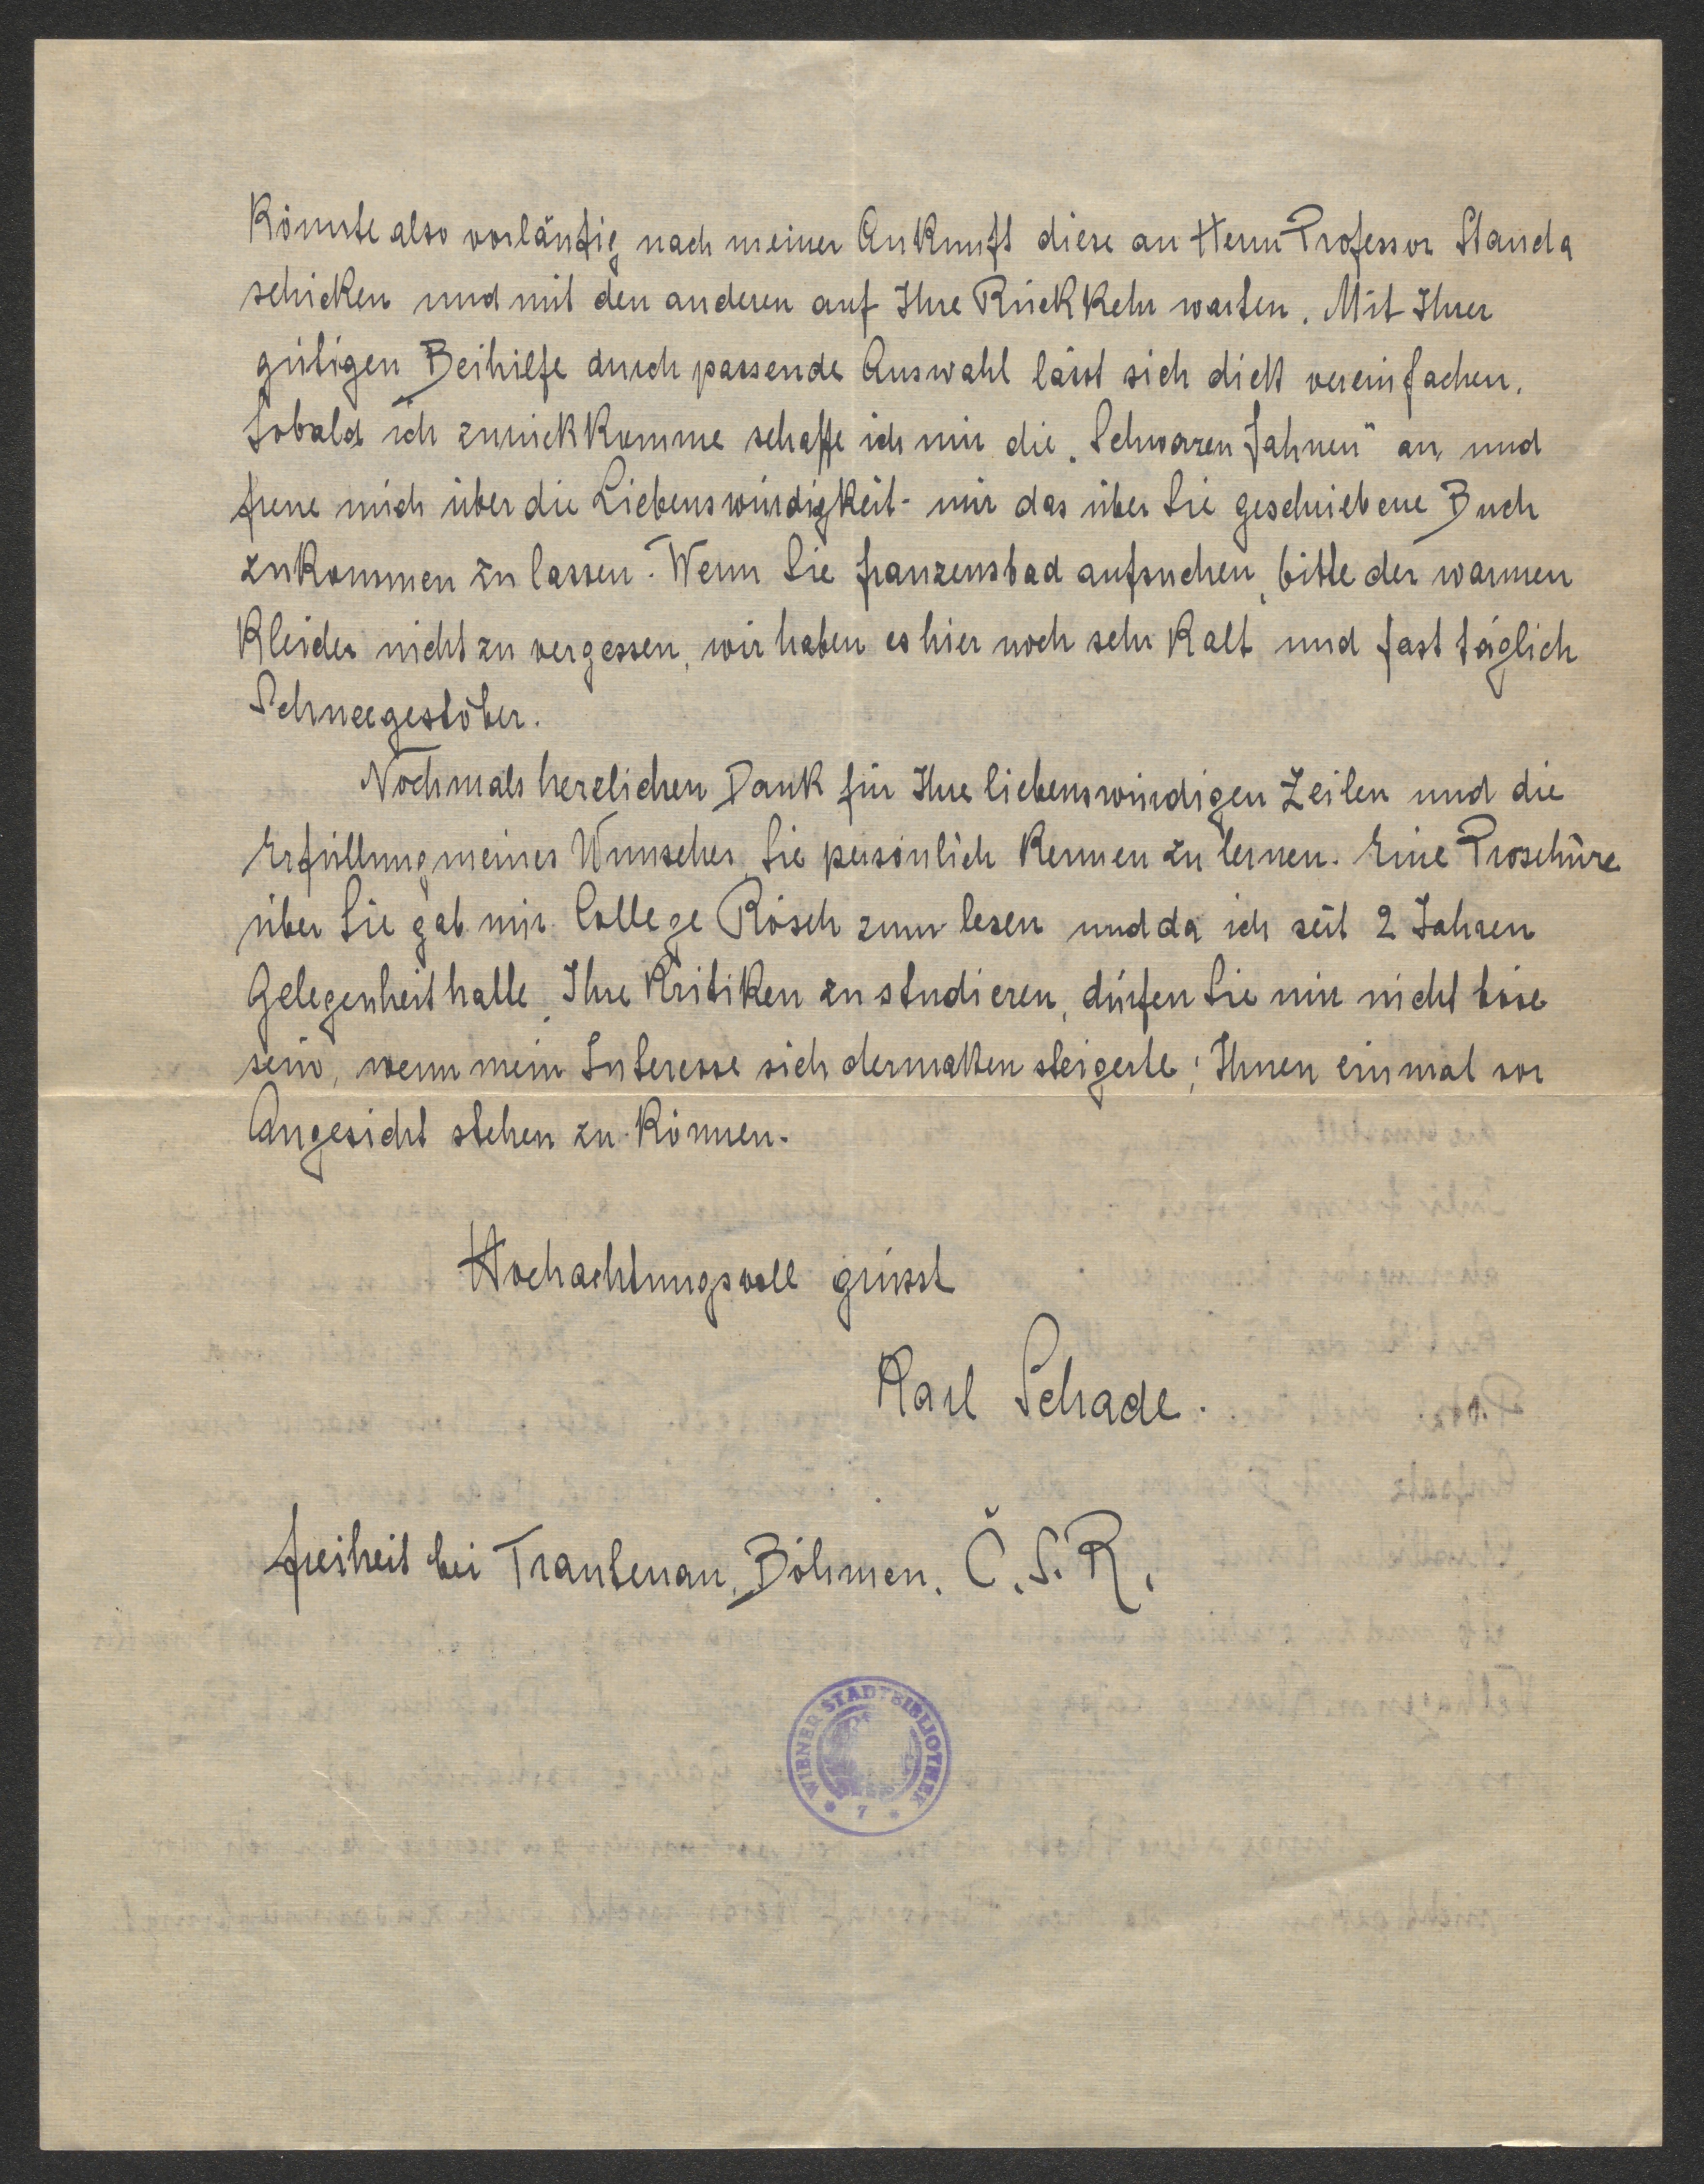 könnte also vorläufig nach meiner Ankunft diese an Herrn Professor Standa
schicken und mit den anderen auf Ihre Rückkehr warten. Mit Ihrer
gütigen Beihilfe durch passende Auswahl lässt sich vereinfachen.
Sobald ich zurückkomme schaffe ich mir die „Schwarzen Fahnen" an, und
freue mich über die Liebenswürdigkeit - mir das über Sie geschriebene Buch
zukommen zu lassen. Wenn Sie Franzensbad aufsuchen, bitte der warmen
Kleider nicht zu vergessen, wir haben es hier noch sehr kalt und fast täglich
Schneegestöber.
Nochmals herzlichen Dank für Ihre liebenswürdigen Zeilen und die
Erfüllung meines Wunsches, Sie persönlich kennen zu lernen. Eine Proschüre
über Sie gab mir College Rösch zum lesen und da ich seit 2 Jahren
Gelegenheit hatte, Ihre Kritiken zu studieren, dürfen Sie mir nicht böse
sein, wenn mein Interesse sich dermaßen steigerte; Ihnen einmal vor
Angesicht stehen zu können.
Hochachtungsvoll grüsst
Karl Schade.
Freiheit bei Trautenau, Böhmen. Č.S.R.
WIENER STADTBIBLIOTHEK
* 7 *